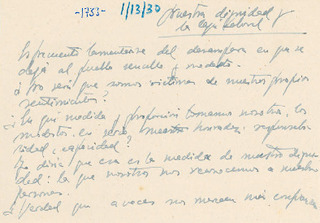 -1753-
1/13/30
Nuestra dignidad y
la caja laboral
Es frecuente lamentarse del desamparo en que se
deja al pueblo sencillo y modesto.
¿No será que somos víctimas de nuestros propios
sentimientos?
¿En qué medida y proporción tomamos nosotros, los
modestos, en serio nuestra honradez, responsabi-
lidad, capacidad?
Se diría que esa es la medida de nuestra digni-
dad: la que nosotros nos reconocemos a nuestras
personas.
Es verdad que a veces nos merecen más confianza